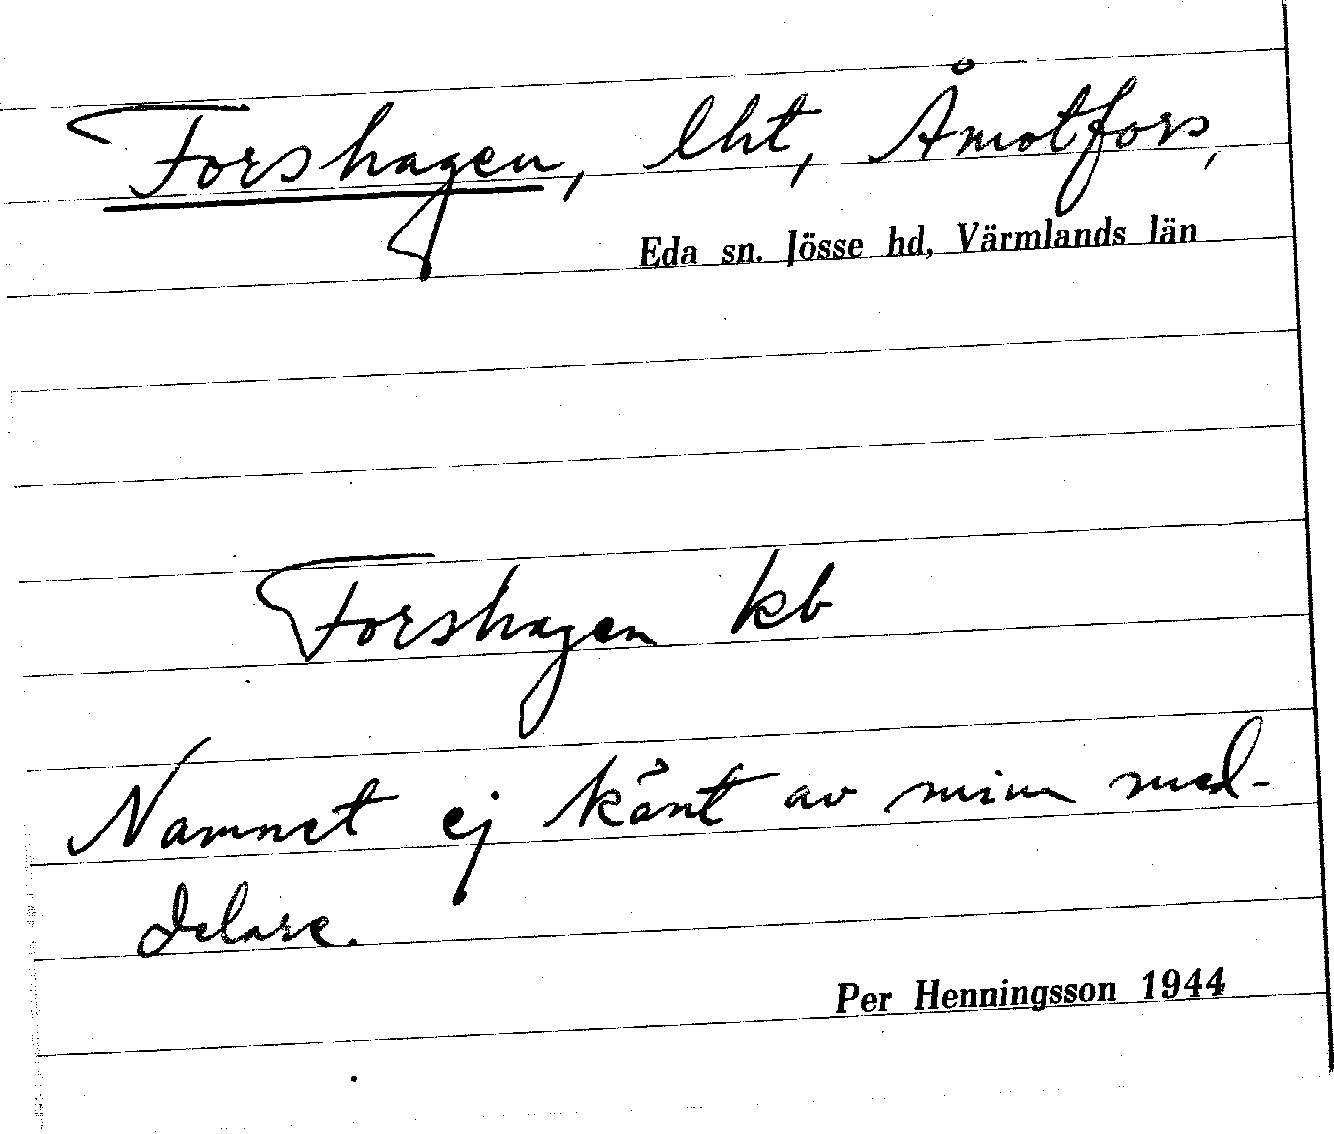 Forshagen, lht, Åmotfors,
Eda sn. Jösse hd, Värmlands län
Forshagen kb
Namnet ej känt av mina med-
delare.
Per Henningsson 1944